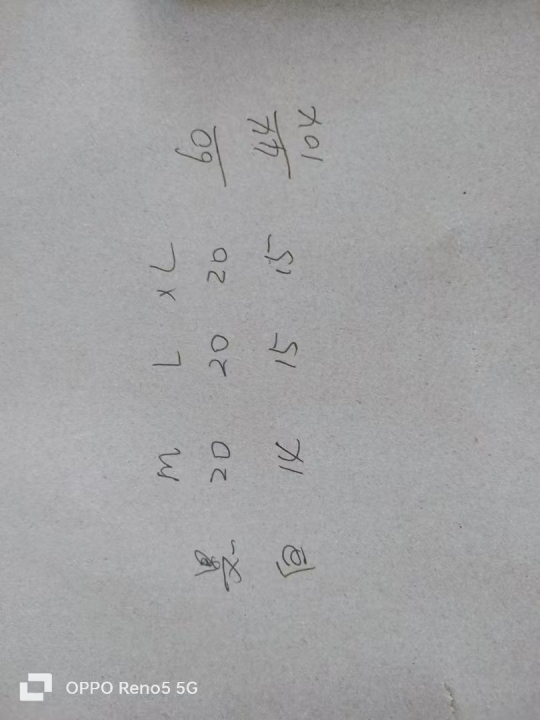 M L XL
20 20 20 60
白 14 15 15 44
104
OPPO Reno5 5G